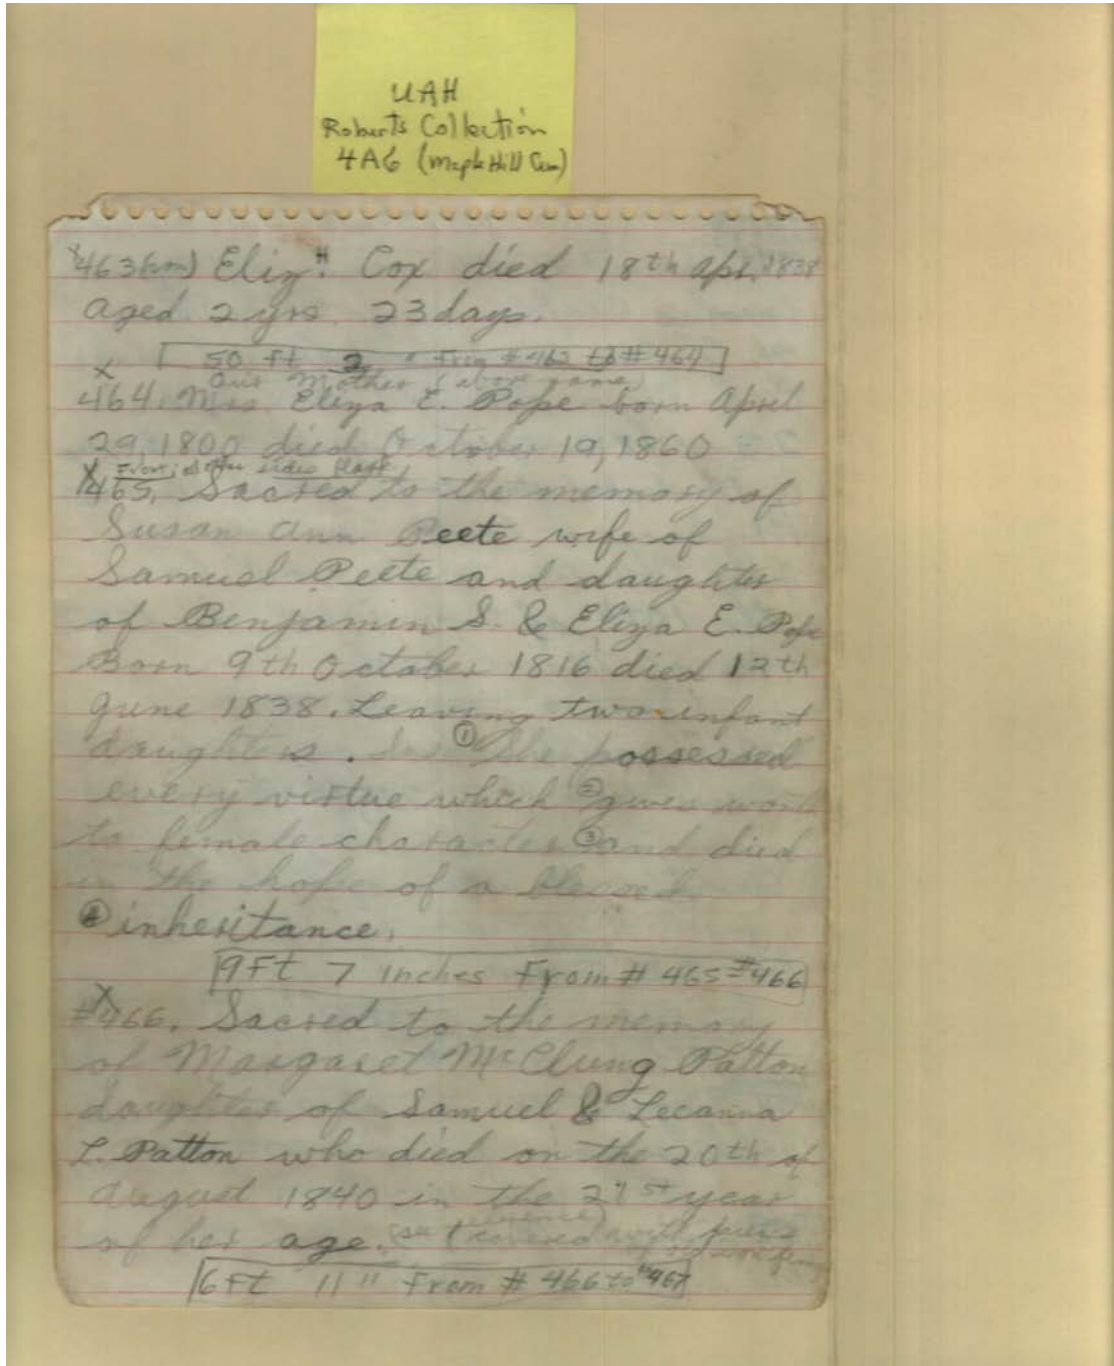 UAH
Roberts Collection
4A6 (Maple Hill Cem)
463 Eliz. H Cox died 18th Apr. 1838
aged 2 yrs. 23 days.
50 ft 2 " From # 462 to # 464
Our Mother (above name)
464. Mrs Eliza E. Pope born April
29, 1800 died October 19, 1860
Front, other sides blank
465. Sacred to the memory of
Susan Ann Peete wife of
Samuel Peete and daughter
of Benjamin S. & Eliza E. Pope
Born 9th October 1816 died 12th
June 1838. Leaving two infant
daughters. ① She possessed
every virtue which ② gives
to female character ③ and died
in the hope of a blessed
④ inheritance.
9 Ft 7 inches From # 465 #466
#466. Sacred to the memory
of Margaret McClung Patton
daughter of Samuel & Lecanna
L. Patton who died on the 20th of
August 1840 in the 21st year
of her age. (see covered with
6 Ft 11 " From # 466 to #467